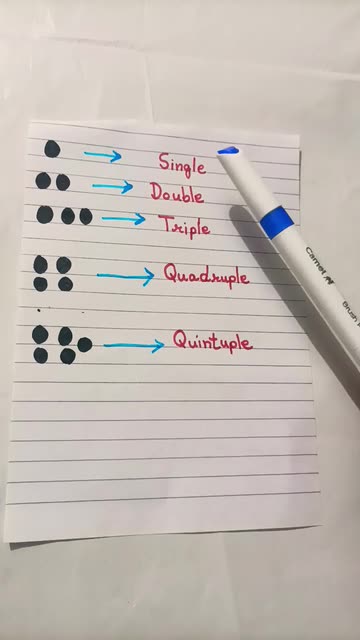 Single
Double
Triple
Quadruple
Quintuple
Camel